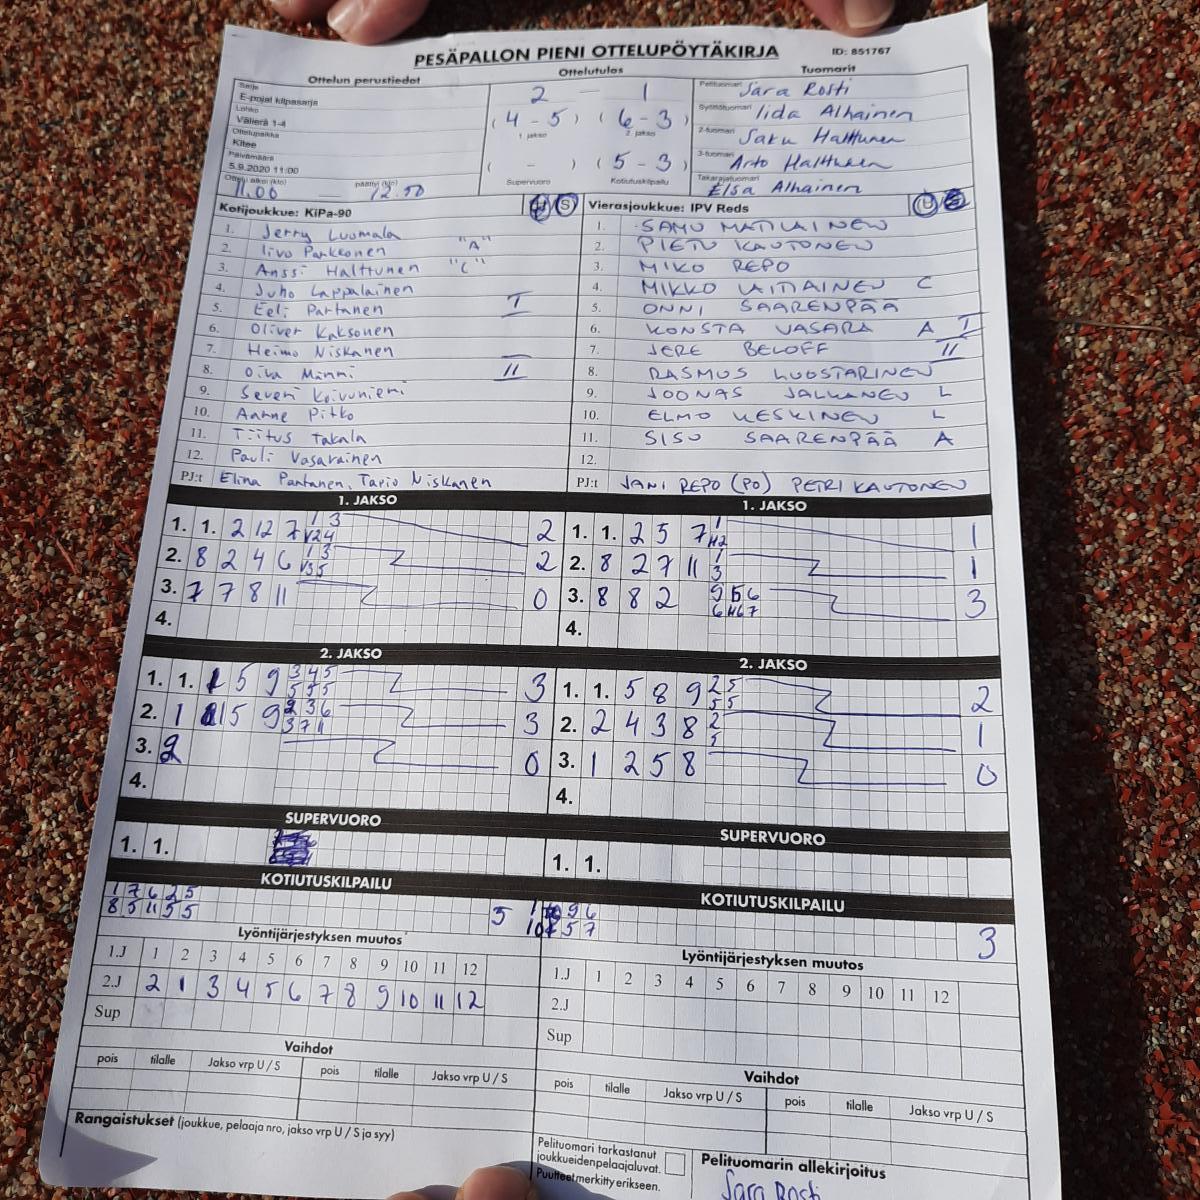 PESÄPALLON PIENI OTTELUPÖYTÄKIRJA ID: 851767
Ottelun perustiedot Ottelutulos Tuomarit
Sarja
E-pojat kilpasarja
Lohko
Välierä 1-4
Ottelupaikka
Kitee
Päivämäärä
5.9.2020 11:00
Ottelu alkoi (klo) 11.00 päättyi (klo) 12.50
2 – 1
(4 - 5) (6 - 3)
1. jakso 2. jakso
( - ) (5 - 3)
Supervuoro Kotiutuskilpailu
Pelituomari Sara Rosti
Syöttötuomari Iida Alhainen
2-tuomari Saku Halttunen
3-tuomari Arto Halttunen
Takarajatuomari Elsa Alhainen
Kotijoukkue: KiPa-90 U S
1. Jerry Luomala
2. Iivo Pankkonen "A"
3. Anssi Halttunen "C"
4. Juho Lappalainen
5. Eeli Partanen I
6. Oliver Kaksonen
7. Heimo Niskanen
8. Oiva Männi II
9. Severi Koivuniemi
10. Aarne Pitko
11. Tiitus Takala
12. Pauli Vasarainen
PJ:t Elina Partanen, Tapio Niskanen
Vierasjoukkue: IPV Reds U
1. SAMU MATIKAINEN
2. PIETU KAUTONEN
3. MIKO REPO
4. MIKKO LAITIAINEN C
5. ONNI SAARENPÄÄ
6. KONSTA VASARA A I
7. JERE BELOFF II
8. RASMUS KUOSTARINEN
9. JOONAS JALKANEN L
10. ELMO KESKINEN L
11. SISU SAARENPÄÄ A
12.
PJ:t JANI REPO (PO) PETRI KAUTONEN
1. JAKSO
1. 1. 2 12 7 2
2. 8 2 4 6 2
3. 7 7 8 11 0
4.
1. JAKSO
1. 1. 2 5 7 1
2. 8 2 7 11 1 3 1
3. 8 8 2 3
4.
2. JAKSO
1. 1. 5 9 3 4 5 3
5 5 5
2. 1 5 9 3 6 3
3 7 11
3. 0
4.
2. JAKSO
1. 1. 5 8 9 2 5 2
5 5
2. 2 4 3 8 2 1
5
3. 1 2 5 8 0
4.
SUPERVUORO
1. 1.
SUPERVUORO
1. 1.
KOTIUTUSKILPAILU
1 7 6 2 5
8 5 11 5 5 5
KOTIUTUSKILPAILU
1 9 6
10 5 7 3
Lyöntijärjestyksen muutos
1.J 1 2 3 4 5 6 7 8 9 10 11 12
2.J 2 1 3 4 5 6 7 8 9 10 11 12
Sup
Lyöntijärjestyksen muutos
1.J 1 2 3 4 5 6 7 8 9 10 11 12
2.J
Sup
Vaihdot
pois tilalle Jakso vrp U / S pois tilalle Jakso vrp U / S
Vaihdot
pois tilalle Jakso vrp U / S pois tilalle Jakso vrp U / S
Rangaistukset (joukkue, pelaaja nro, jakso vrp U / S ja syy)
Pelituomari tarkastanut
joukkueidenpelaajaluvat.
Puutteet merkitty erikseen.
Pelituomarin allekirjoitus
Sara Rosti